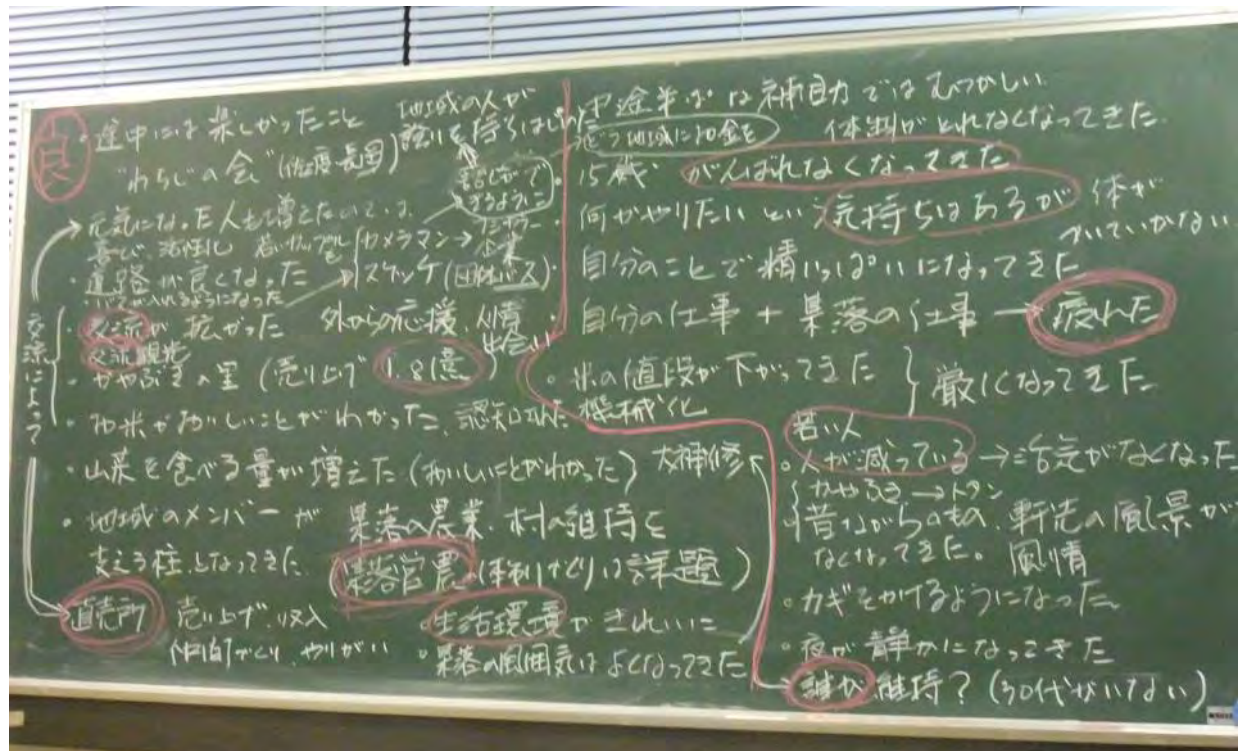 良
・途中には楽しかったこと
"わらじの会"(佐渡・長岡)
地域の人が
誇りを持ちはじめた
話しができ
るように
元気になった人も増えたのでは
喜び 活性化 若いカップル
カメラマン→
スケッチ(団体バス)
企業
・道路が良くなった
バスが入れるようになった
・交流が拡がった
外からの応援、人情
出会い
交流観光
・かやぶきの里(売り上げ 1.8億)
・お米がおいしいことがわかった、認知された
・山菜を食べる量が増えた(おいしいことがわかった)
・地域のメンバーが
支える柱となってきた
集落の農業、村の維持を
(集落営農)
課題)
交流によって
直売所 売り上げ、収入
仲間づくり、やりがい
・生活環境がきれいに
・集落の風囲気はよくなってきた
中途半ぱは補助ではむつかしい
地域にお金を
体制がとれなくなってきた
・15歳 がんばれなくなってきた
・何かやりたいという気持ちはあるが 体が
ついていかない
・自分のことで精いっぱいになってきた
・自分の仕事+集落の仕事→疲れた
・米の値段が下がってきた
機械化
厳しくなってきた
若い人
・人が減っている→活気がなくなった
かやぶき→トタン
昔ながらのもの、軒先の風景が
なくなってきた。風情
・カギをかけるようになった
・夜が静かになってきた
大補修
誰が維持?(30代がいない)